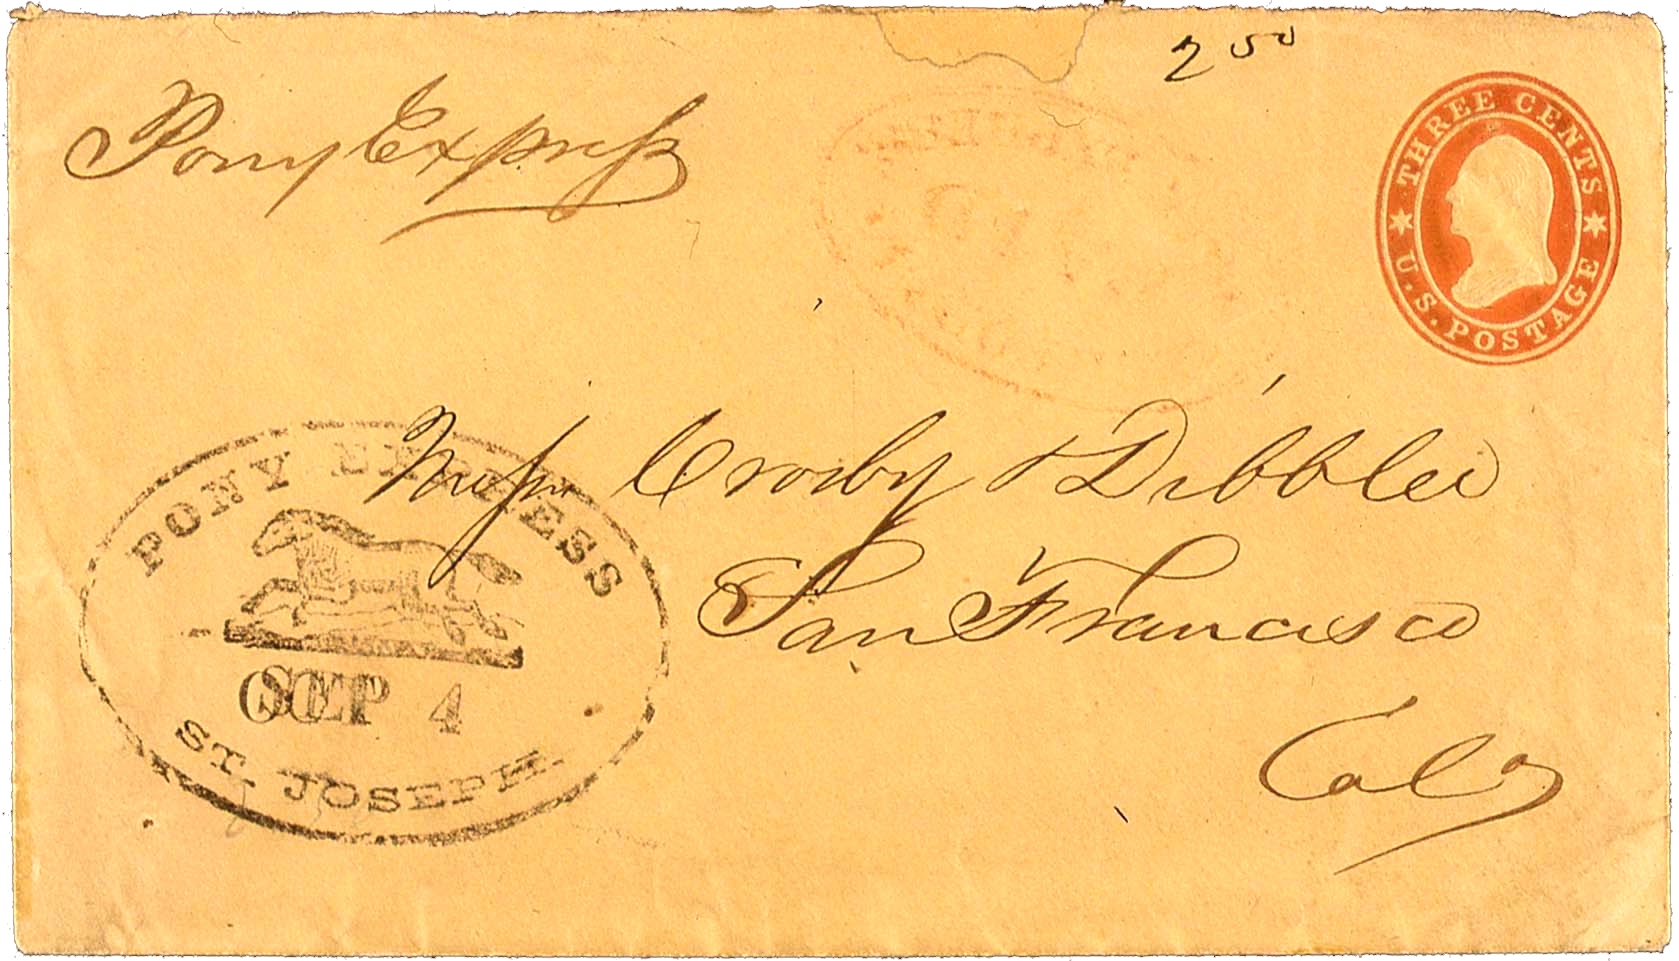 2 50
Pony Express
THREE CENTS
U.S. POSTAGE
PONY EXPRESS
Messrs Crosby & Dibblee
San Francisco
Cal
SEP 4
ST. JOSEPH.